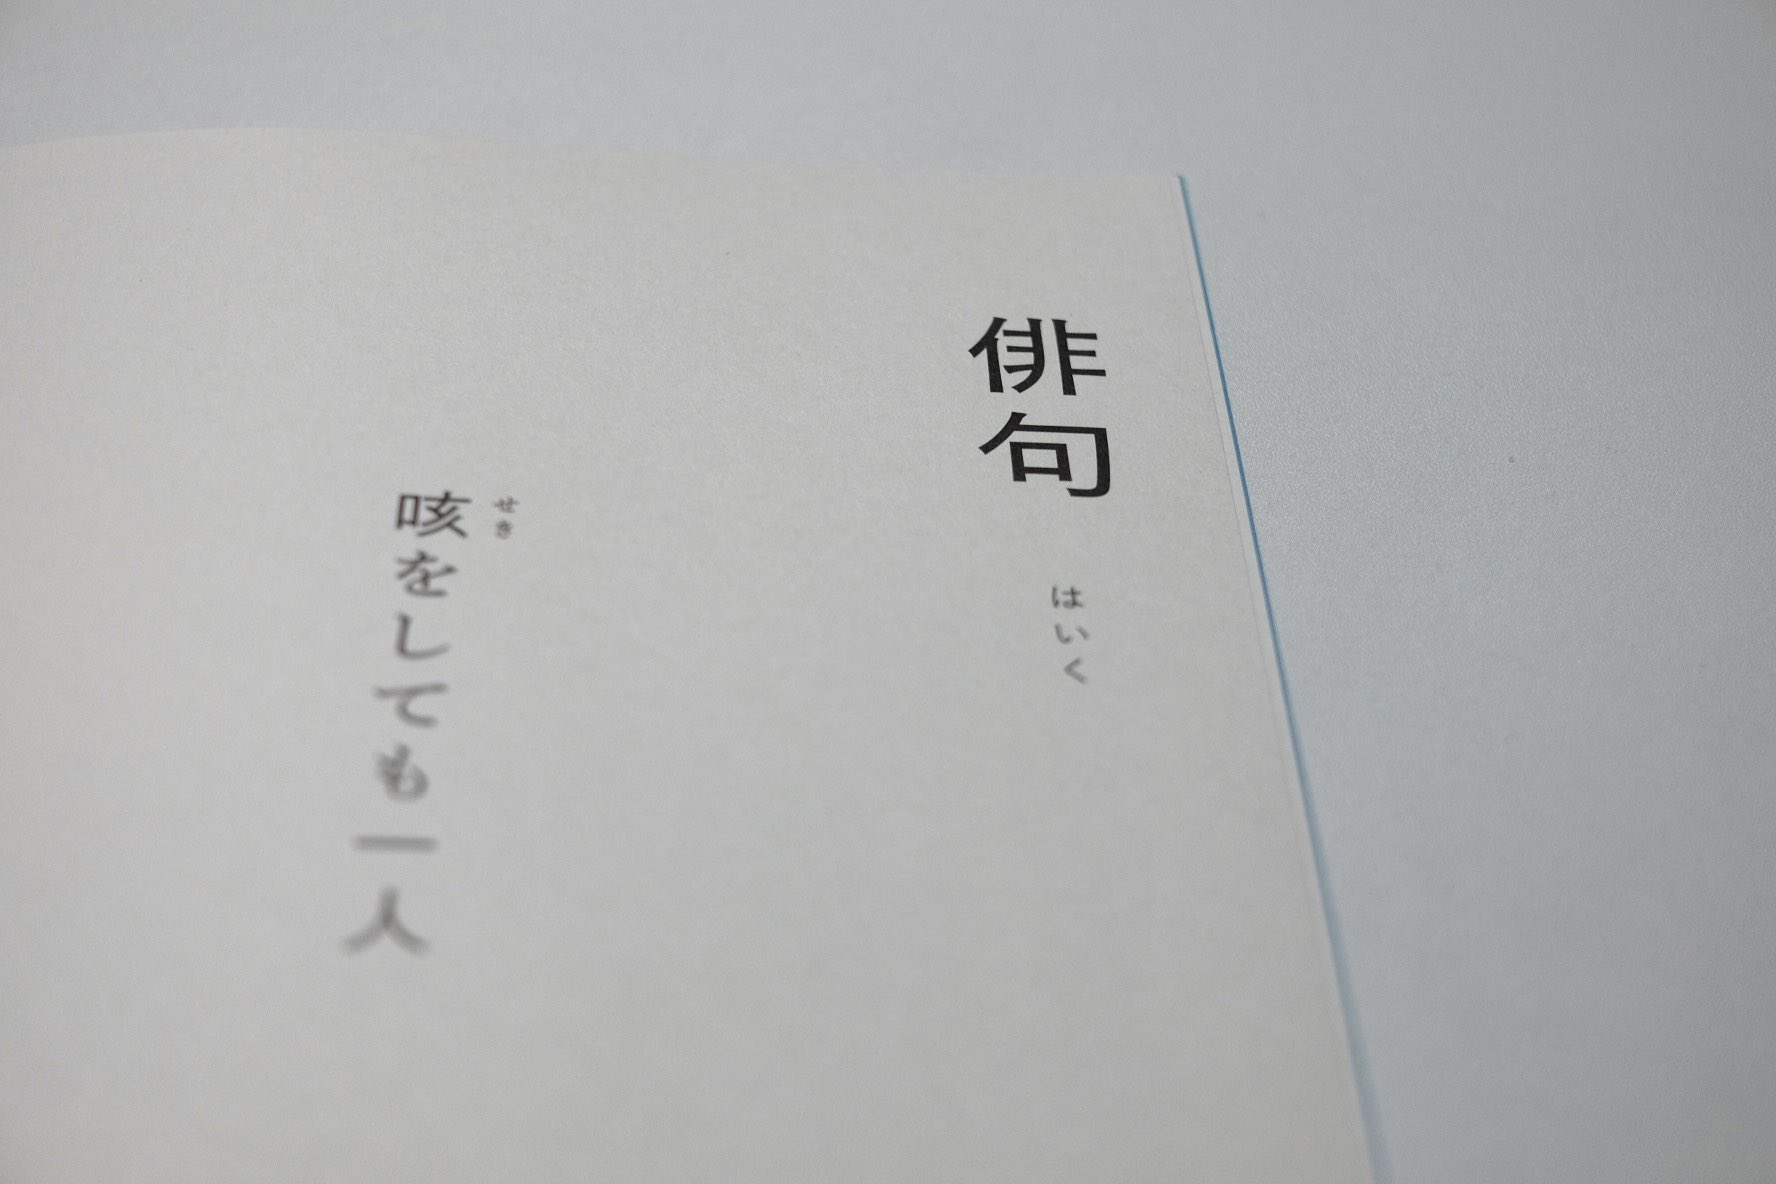 俳句
はいく
せき
咳をしても一人